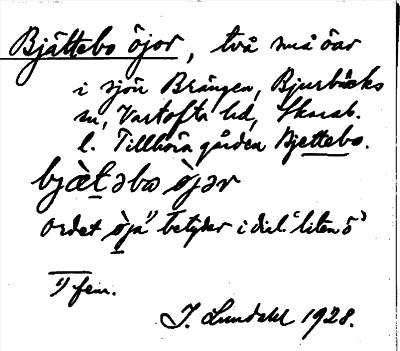 Bjättebo öjor, två små öar
i sjön Brängen, Bjurbäcks
sn, Vartofta hd, Skarab.
l. Tillhöra gården Bjettebo.
bjæ̀təbo ö̀jər
ordet ö̀ja¹⁾ betyder i dial. "liten ö"
¹⁾ fem.
J. Lundahl 1928.